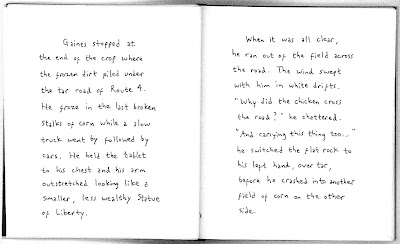 Gaines stopped at
the end of the crop where
the frozen dirt piled under
the tar road of Route 4.
He froze in the last broken
stalks of corn while a slow
truck went by followed by
cars. He held the tablet
to his chest and his arm
outstretched looking like a
smaller, less wealthy Statue
of Liberty.
When it was all clear,
he ran out of the field across
the road. The wind swept
with him in white drifts.
"Why did the chicken cross
the road?" he chattered.
"And carrying this thing too..."
he switched the flat rock to
his left hand, over tar,
before he crashed into another
field of corn on the other
side.